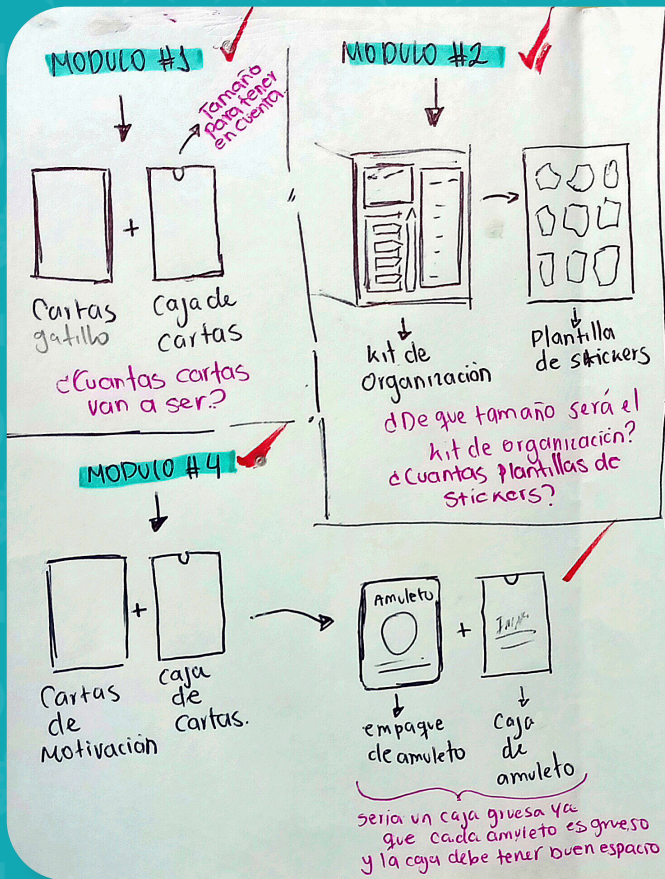 MODULO #1
Tamaño
para tener
en cuenta.
+
Cartas
gatillo
Caja de
cartas
¿Cuantas cartas
van a ser?
MODULO #2
kit de
Organización
Plantilla
de stickers
¿De que tamaño será el
kit de organización?
¿Cuantas plantillas de
stickers?
MODULO #4
+
Cartas
de
Motivación
caja
de
cartas.
Amuleto
+
empaque
de amuleto
Caja
de
amuleto
seria un caja gruesa ya
que cada amuleto es grueso
y la caja debe tener buen espacio